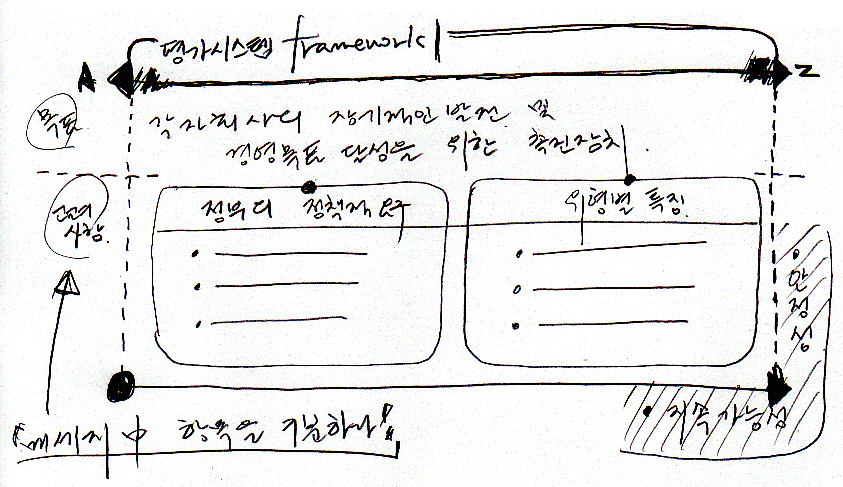 평가시스템 framework
A
Z
목표
각 자회사의 장기적인 발전 및
경영목표 달성을 위한 촉진장치
고려
사항.
정부의 정책적 요구
유형별 특징.
• 안정성
• 지속가능성
"메세지 中 항목을 구분하라!!"